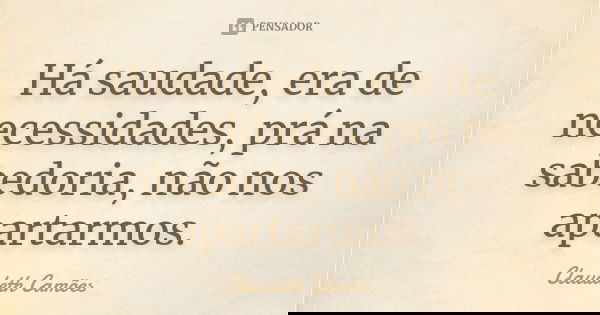 PENSADOR
Há saudade, era de
necessidades, prá na
sabedoria, não nos
apartarmos.
Claudeth Camões